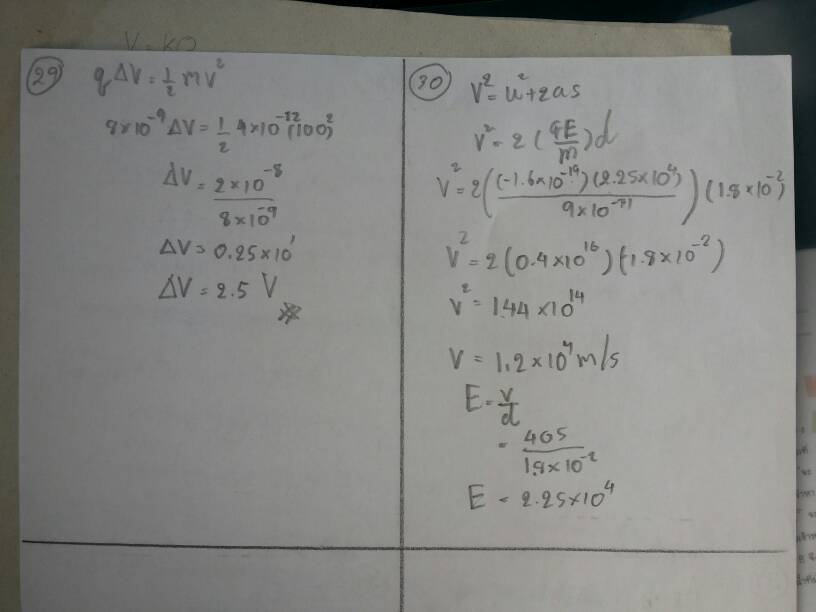 V = KQ
29
q ΔV = 1/2 mv²
8×10⁻⁹ ΔV = 1/2 4×10⁻¹² (100)²
ΔV = 2×10⁻⁸ / 8×10⁻⁹
ΔV = 0.25×10¹
ΔV = 2.5 V
30
V² = u² + 2as
V² = 2 (qE/m) d
V² = 2 ((-1.6×10⁻¹⁹)(2.25×10⁴) / 9×10⁻³¹) (1.8×10⁻²)
V² = 2 (0.4×10¹⁶)(-1.8×10⁻²)
V² = 1.44×10¹⁴
V = 1.2×10⁷ m/s
E = V/d
= 405 / 1.8×10⁻²
E = 2.25×10⁴